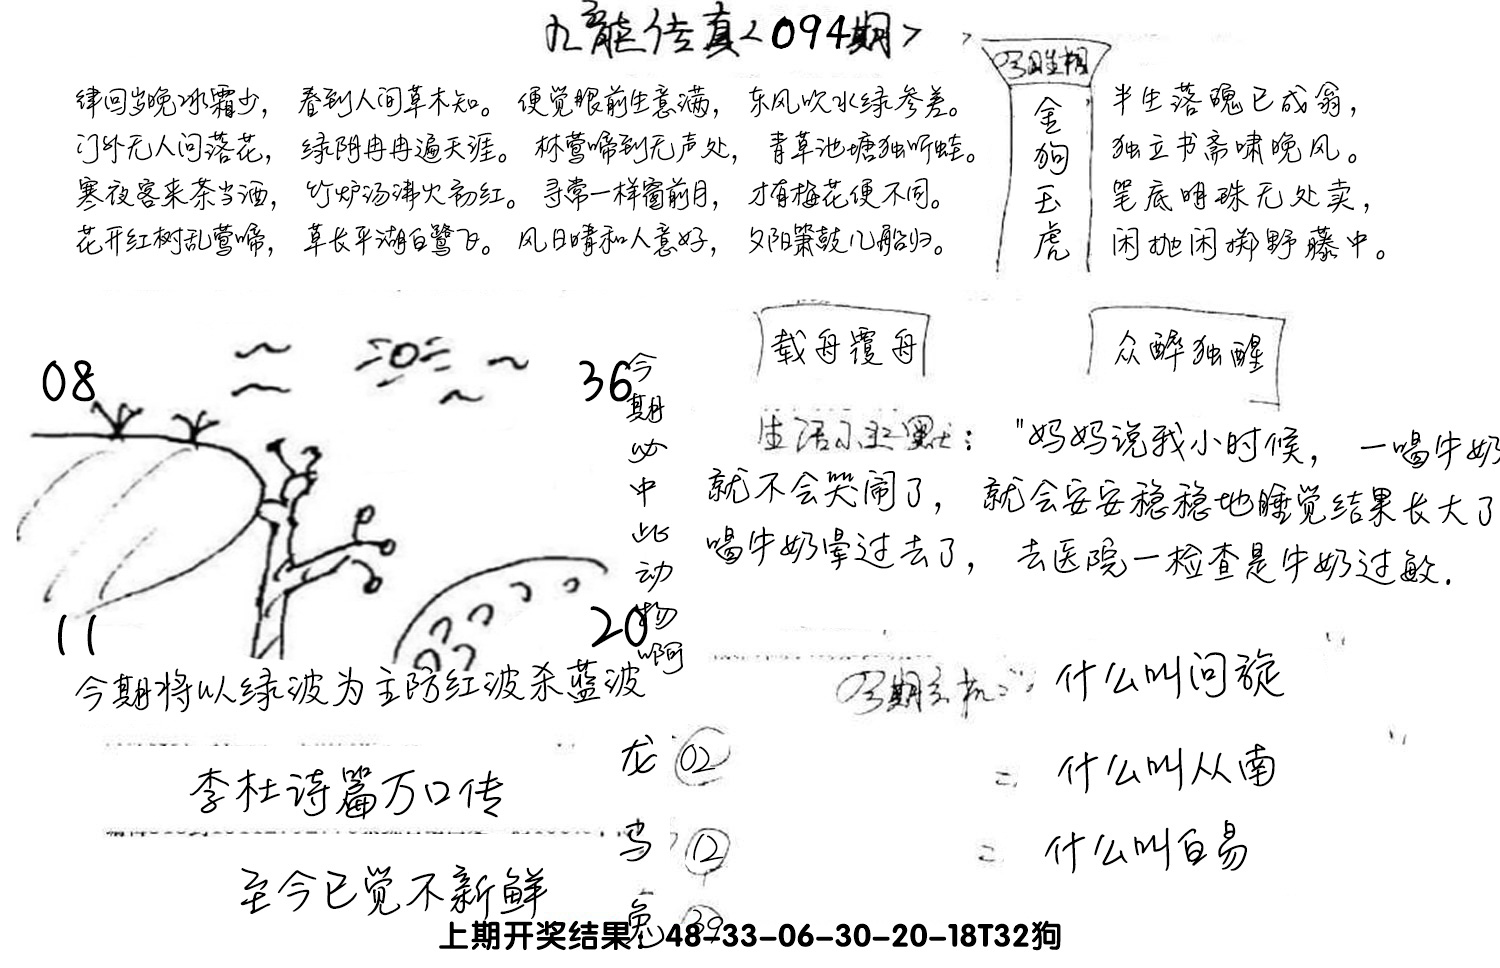 九龙传真<094期>
律回岁晚冰霜少，春到人间草木知。便觉眼前生意满，东风吹水绿参差。
门外无人问落花，绿阴冉冉遍天涯。林莺啼到无声处，青草池塘独听蛙。
寒夜客来茶当酒，竹炉汤沸火初红。寻常一样窗前月，才有梅花便不同。
花开红树乱莺啼，草长平湖白鹭飞。风日晴和人意好，夕阳箫鼓几船归。
金狗玉虎
半生落魄已成翁，
独立书斋啸晚风。
笔底明珠无处卖，
闲抛闲掷野藤中。
载舟覆舟
众醉独醒
08
36
11
20
今期必中此动物啊
生活小幽默："妈妈说我小时候，一喝牛奶
就不会哭闹了，就会安安稳稳地睡觉结果长大了
喝牛奶晕过去了，去医院一检查是牛奶过敏.
今期将以绿波为主防红波杀蓝波
今期玄机：什么叫问旋
= 什么叫从南
= 什么叫白易
李杜诗篇万口传
至今已觉不新鲜
龙 02
鸟 12
兔 39
上期开奖结果：48-33-06-30-20-18T32狗